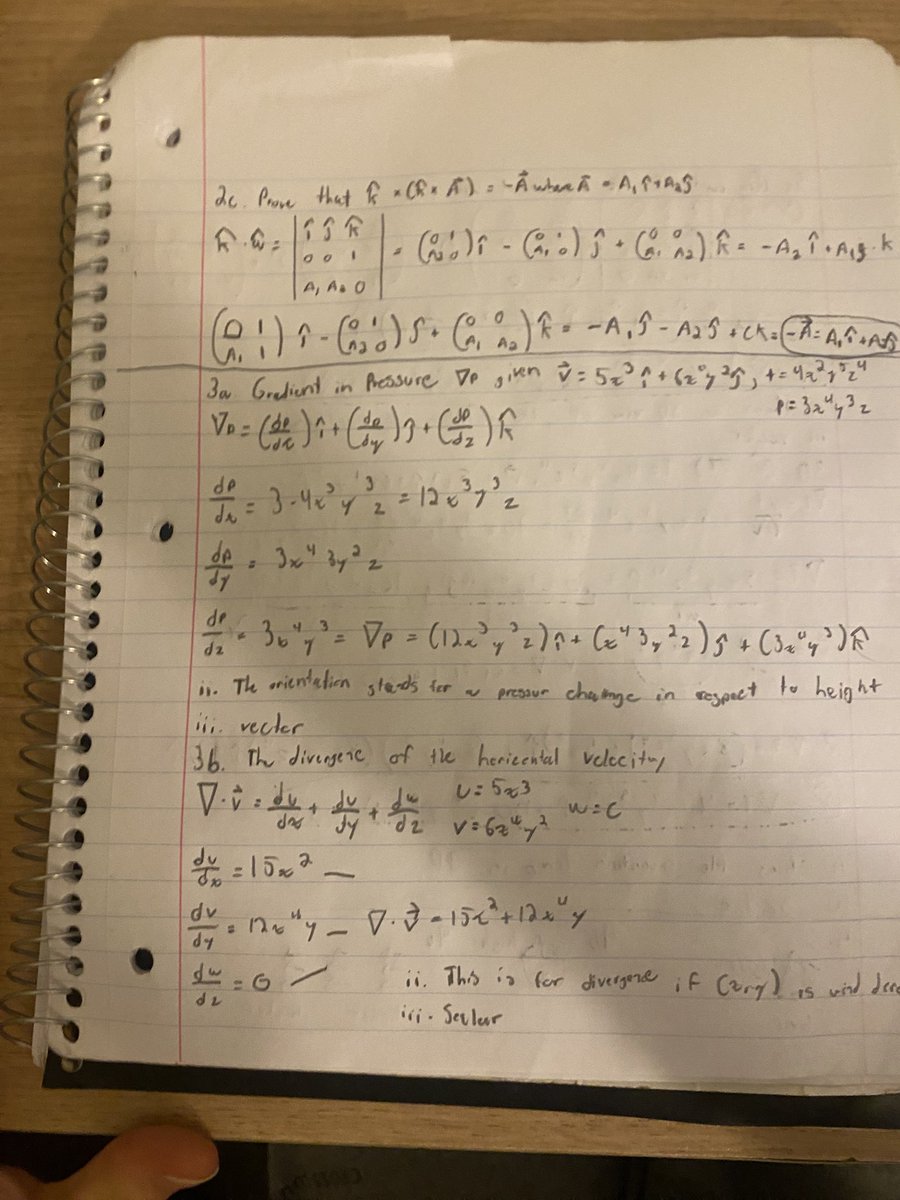 2c. Prove that k̂ × (k̂ × A⃗) = -A⃗ where A⃗ = A₁î + A₂ĵ
k̂ · ŵ = | î ĵ k̂ 0 0 1 A₁ A₂ 0 | = (0 1 A₂ 0)î - (0 1 A₁ 0)ĵ + (0 0 A₁ A₂)k̂ = -A₂î + A₁ĵ · k
(0 1 A₁ 1)î - (0 1 A₂ 0)ĵ + (0 0 A₁ A₂)k̂ = -A₁ĵ - A₂ĵ + Ck = -A⃗ = A₁î + A₂ĵ
3a Gradient in Pressure ∇p given v⃗ = 5x³î + 6x⁴y²ĵ, t = 4x²y⁵z⁴
p = 3x⁴y³z
∇p = (dp/dx)î + (dp/dy)ĵ + (dp/dz)k̂
dp/dx = 3·4x³y³z = 12x³y³z
dp/dy = 3x⁴3y²z
dp/dz = 3x⁴y³ = ∇p = (12x³y³z)î + (x⁴3y²z)ĵ + (3x⁴y³)k̂
ii. The orientation stands for a pressur change in respect to height
iii. vector
3b. The divergene of the horizontal velocity
∇·v⃗ = du/dx + dv/dy + dw/dz u = 5x3 v = 6x⁴y² w = C
du/dx = 15x² —
dv/dy = 12x⁴y — ∇·v⃗ = 15x² + 12x⁴y
dw/dz = 0 —
ii. This is for divergene if (x,y) is wind
iii. Scalar